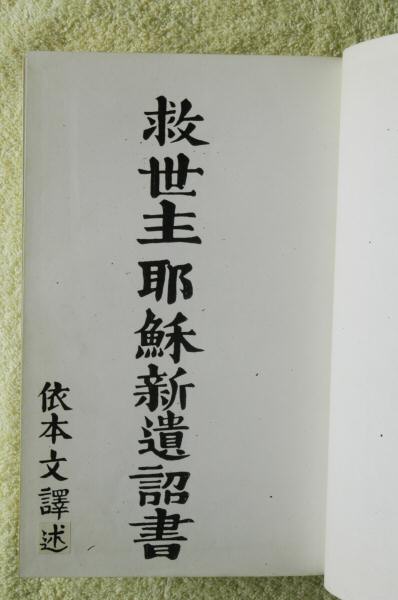 救世主耶穌新遺詔書
依本文譯述